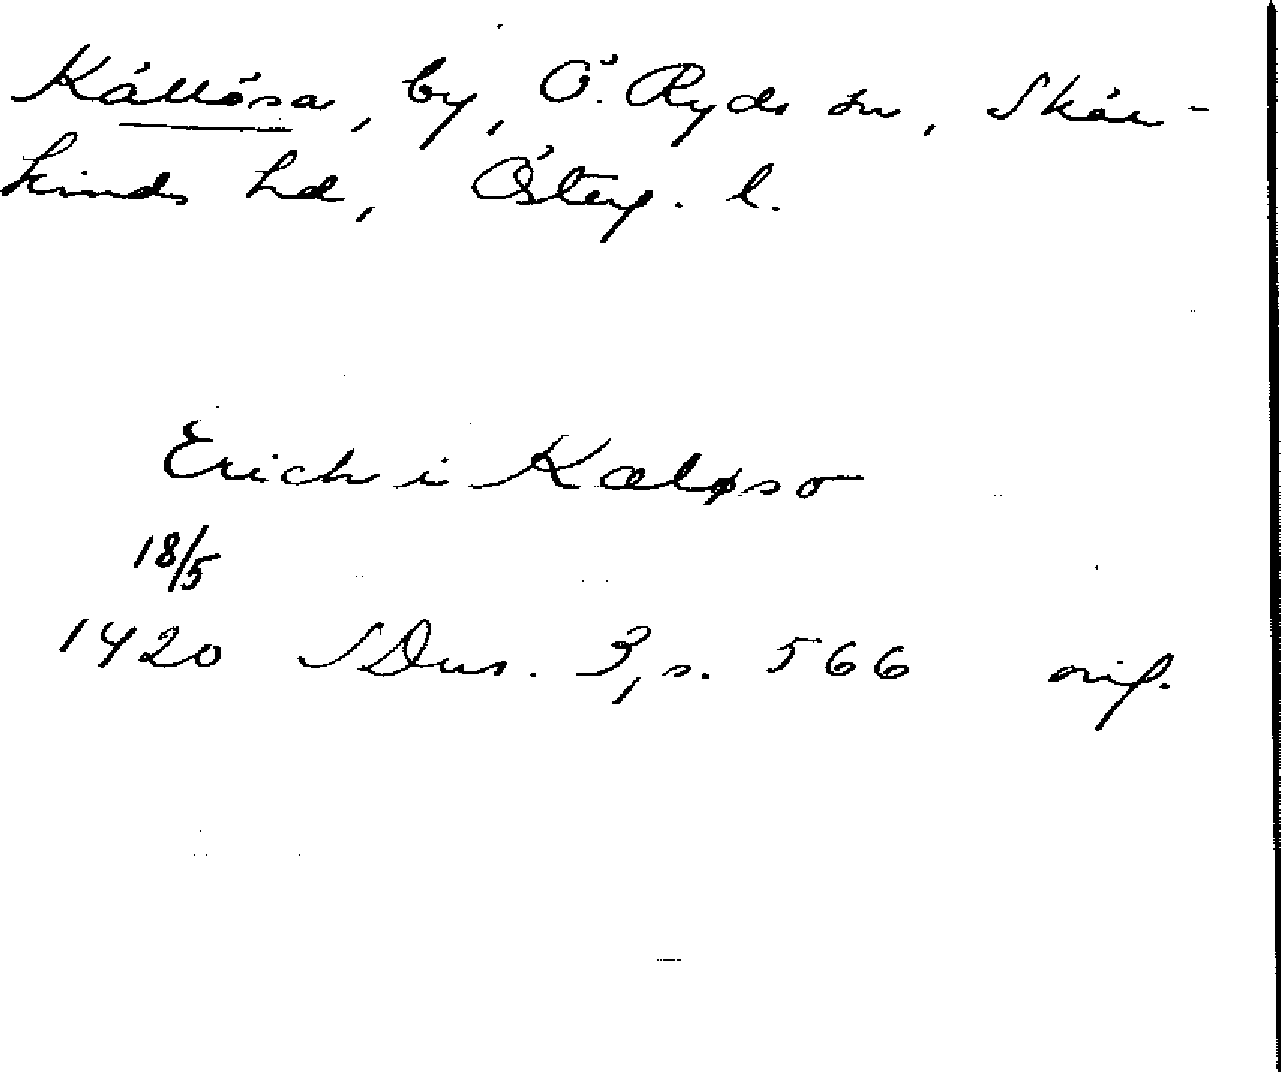 Källösa, by, Ö. Ryds sn, Skär-
kinds hd, Österg. l.
Erich i Kæløso
18/5
1420 SDns. 3, s. 566 orig.